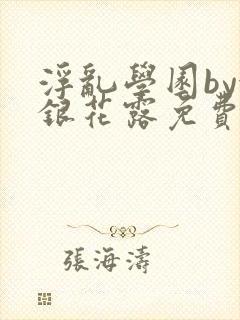 淫亂學園by
銀花露免費
張海濤